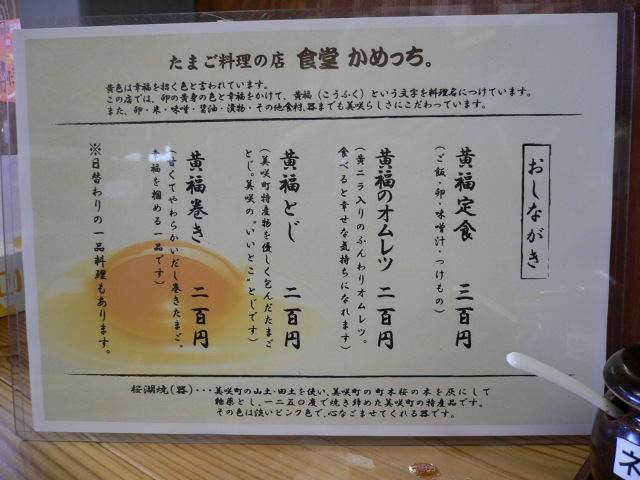 たまご料理の店 食堂 かめっち。
黄色は幸福を招く色と言われています。
この店では、卵の黄身の色と幸福をかけて、黄福（こうふく）という文字を料理名につけています。
また、卵・米・味噌・醤油・漬物・その他食材、器までも美咲らしさにこだわっています。
おしながき
黄福定食 三百円
（ご飯・卵・味噌汁・つけもの）
黄福のオムレツ 二百円
（黄ニラ入りのふんわりオムレツ。
食べると幸せな気持ちになれます）
黄福とじ 二百円
（美咲町特産物を優しく包んだたまご
とじ。美咲の〝いいとこ〟とじです）
黄福巻き 二百円
（甘くてやわらかいだし巻きたまご。
幸福を掴める一品です）
※日替わりの一品料理もあります。
桜湖焼（器）・・・美咲町の山土・田土を使い、美咲町の町木桜の木を灰にして
釉薬とし、一二五〇度で焼き締めた美咲町の特産品です。
その色は淡いピンク色で、心なごませてくれる器です。
ネ